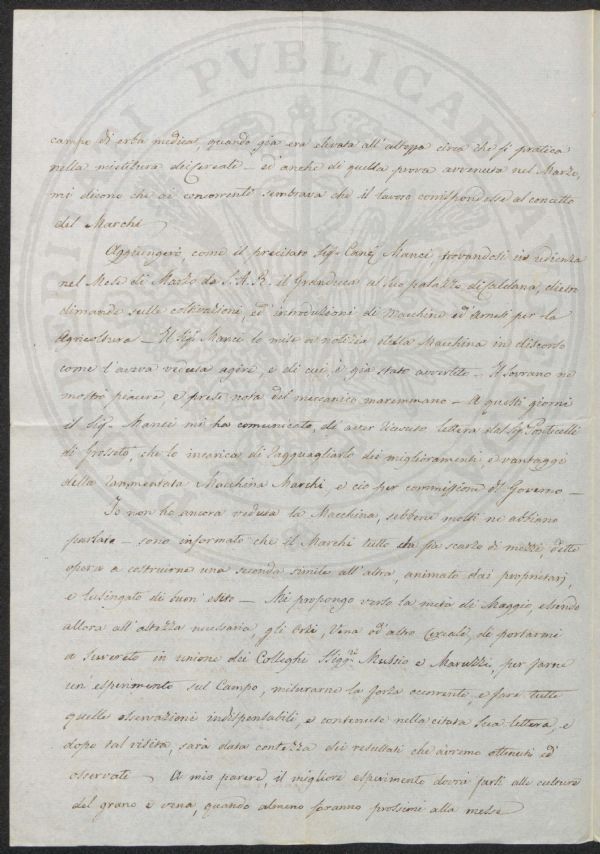 campo di erba medica, quando già era elevata all'altezza circa che si pratica
nella mietitura dei cereali – ed anche di questa prova avvenuta nel Marzo,
mi dicono che ai concorrenti sembrava che il lavoro corrispondesse al concetto
del Marchi
Aggiungerò, come il precitato Sigr. Manci, trovandosi in udienza
nel Mese di Marzo da S. A. R. il Granduca al suo palazzo di Caldana, dietro
dimande sulle coltivazioni, ed introduzioni di Macchine ed arnesi per la
Agricoltura – Il Sigr. Manci lo mise a notizia della Macchina in discorso
come l'aveva veduta agire, e di cui è già stato avvertito – Il Sovrano ne
mostrò piacere, e prese nota del meccanico maremmano – A questi giorni
il Sigr. Manci mi ha comunicato, di aver ricevuto lettera dal Sigr. Ponticelli
di Grosseto, che lo incarica di ragguagliarlo dei miglioramenti, e vantaggi
della rammentata Macchina Marchi, e ciò per commissione del Governo –
Io non ho ancora veduta la Macchina, sebbene molti ne abbiano
parlato – sono informato che il Marchi tutto che sia scarso di mezzi, dette
opera a costruirne una seconda simile all'altra, animato dai proprietari,
e lusingato di buon esito – Mi propongo verso la metà di Maggio, essendo
allora all'altezza necessaria, gli Orzi, Vena od altro Cereale, di portarmi
a Suvereto in unione dei Colleghi Sigg.ri Mussio e Maruzzi, per farne
un'esperimento sul Campo, misurarne la forza ocorrente, e fare tutte
quelle osservazioni indispensabili, e contenute nella citata Sua lettera, e
dopo tal visita, sarà data contezza dei resultati che avremo ottenuti ed
osservati – A mio parere, il migliore esperimento dovrà farsi alle culture
del grano e vena, quando almeno saranno prossimi alla messe